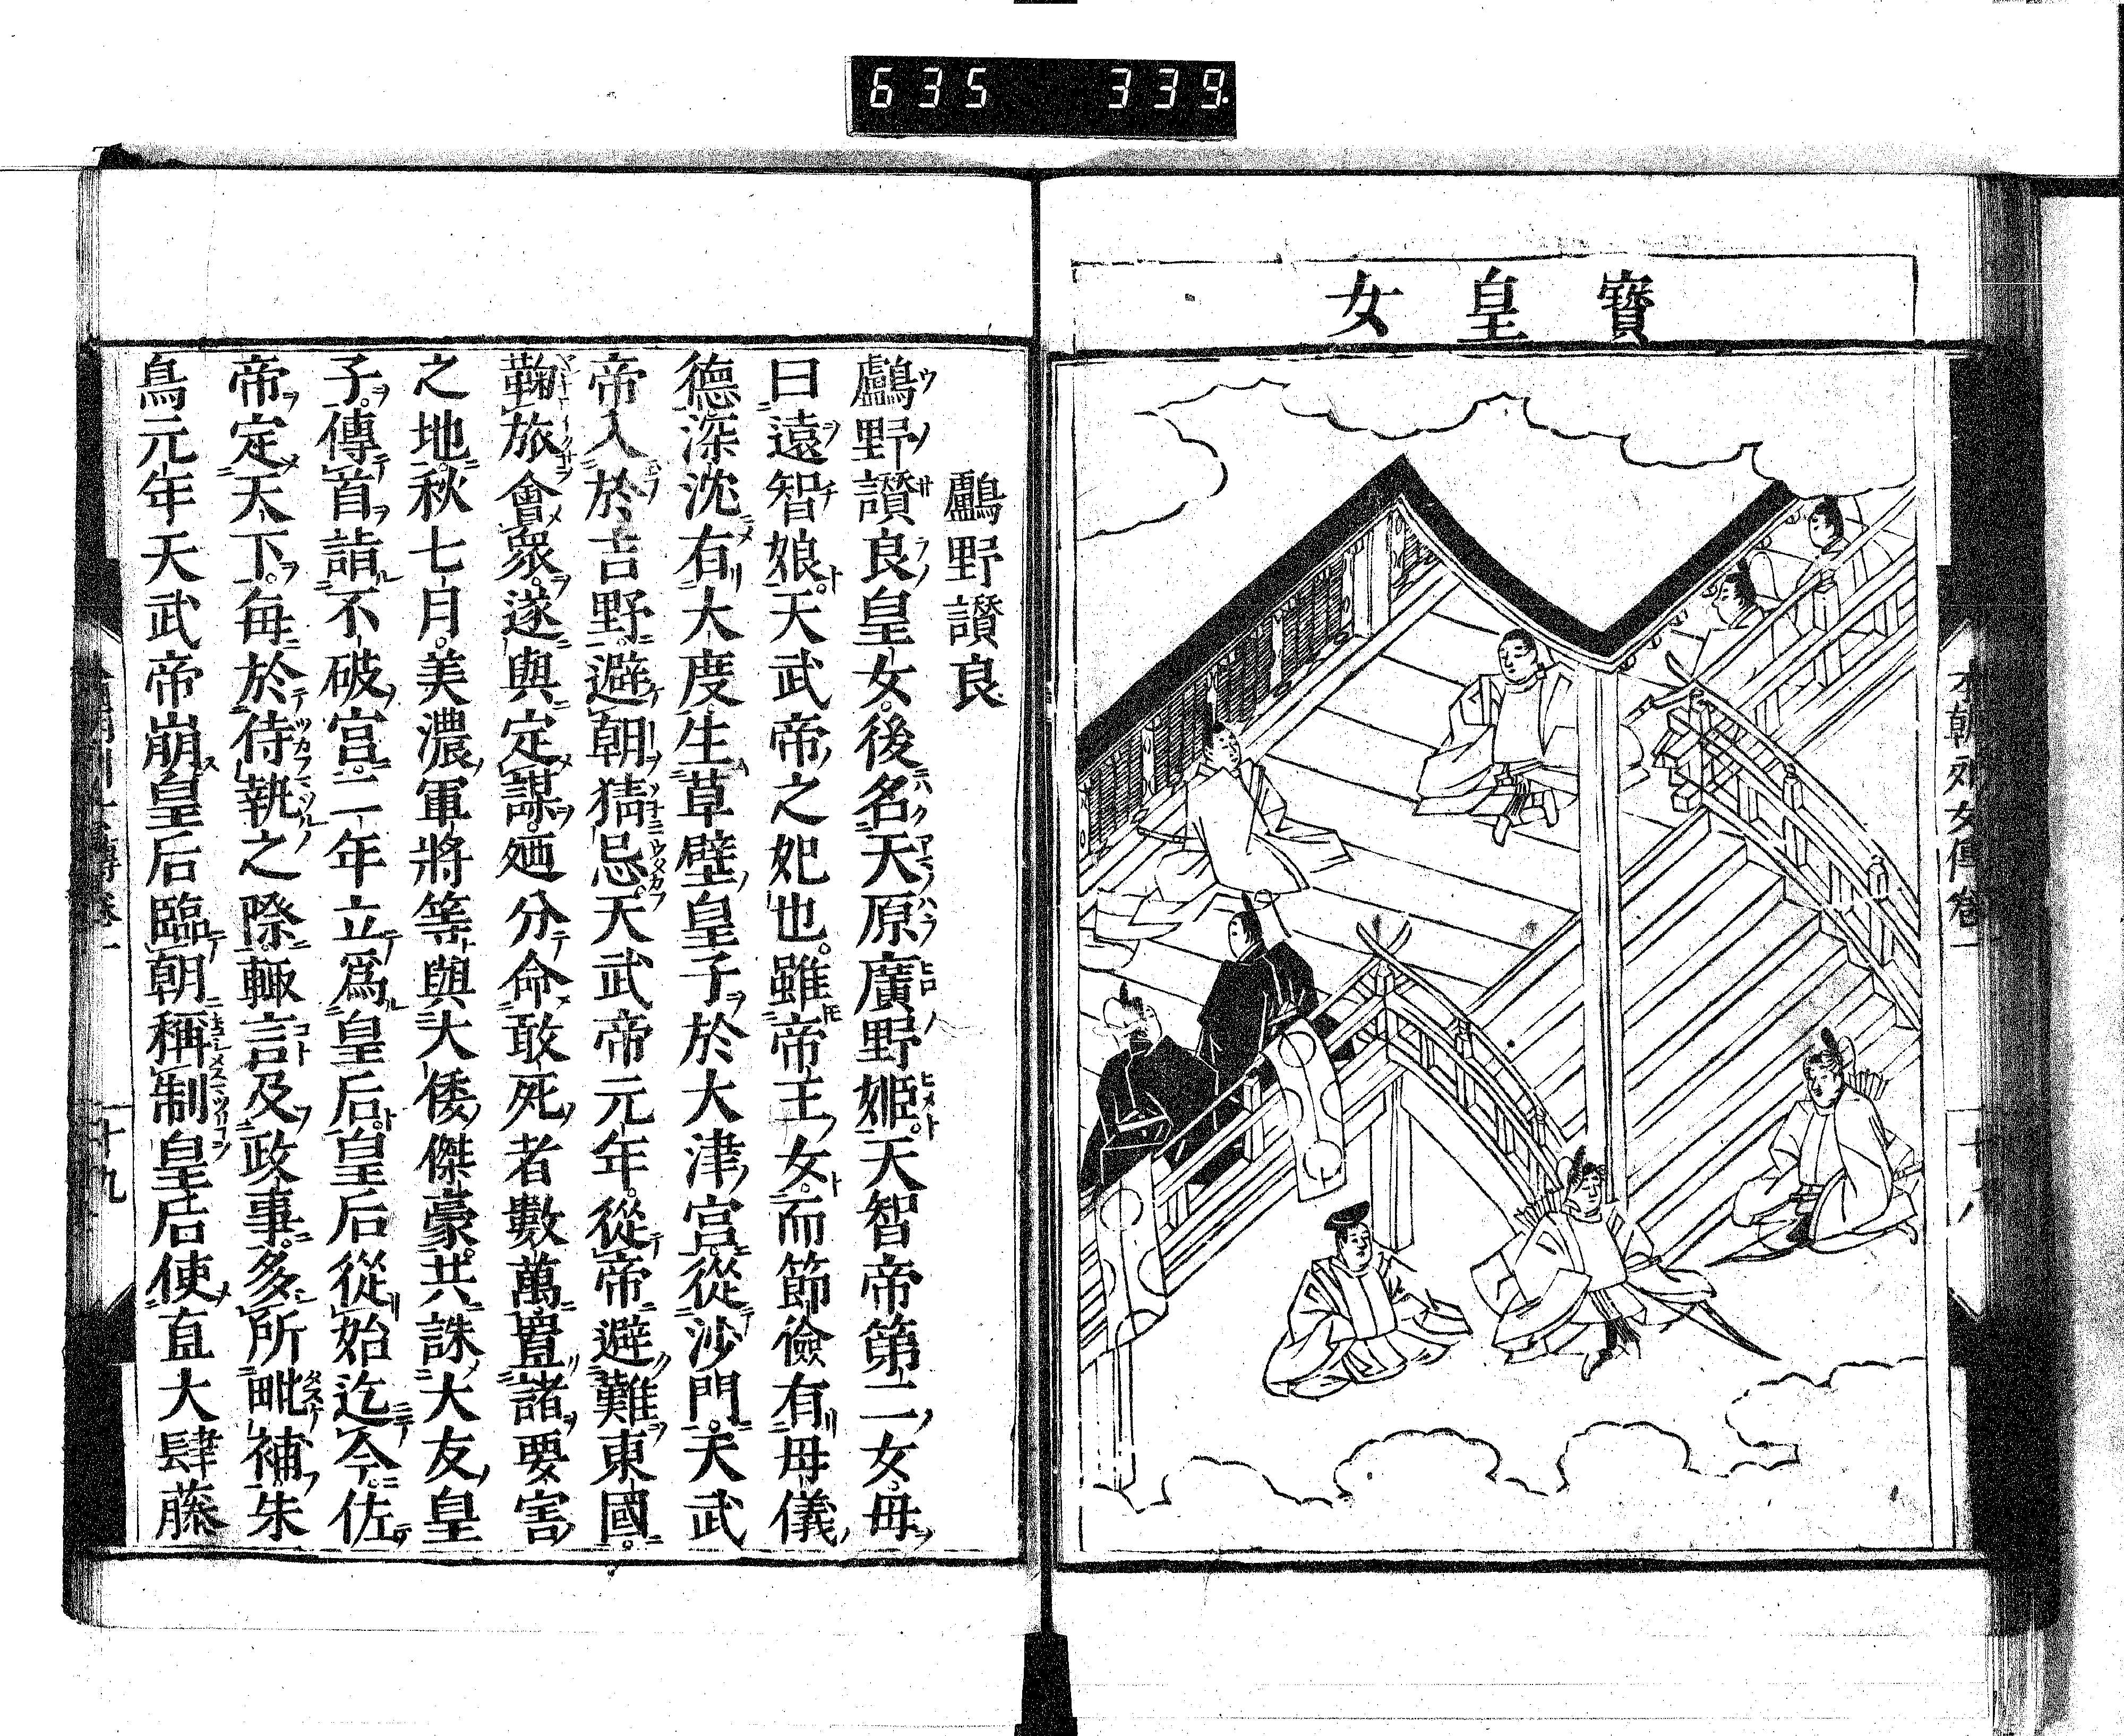 635 339
寳皇女
本朝列女傳卷一
十八
鸕野讃良
鸕野讃良皇女後名天原廣野姫天智帝第二女母
曰遠智娘天武帝之妃也雖帝王女而節儉有母儀
德深沈有大度生草壁皇子於大津宮從沙門天武
帝入於吉野避朝猜忌天武帝元年從帝避難東國
鞠旅會衆遂與定謀廼分命敢死者數萬置諸要害
之地秋七月美濃軍將等與大倭傑豪共誅大友皇
子傳首詣不破宮二年立爲皇后皇后從始迄今佐
帝定天下每於侍執之際輙言及政事多所毗補朱
鳥元年天武帝崩皇后臨朝稱制皇后使直大肆藤
十九